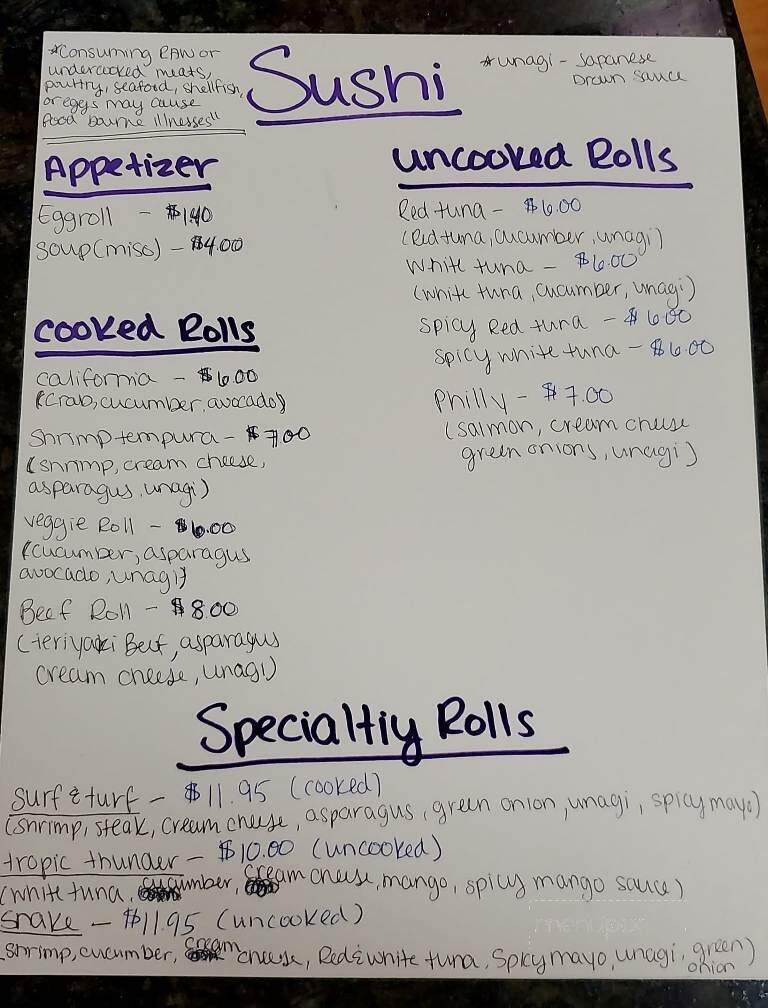 *Consuming RAW or
undercooked meats,
poultry, seafood, shellfish,
or eggs may cause
food bourne illnesses"
Sushi
*unagi - Japanese
Brown sauce
Appetizer
Eggroll - $1.40
soup(miso) - $4.00
cooked Rolls
california - $6.00
(crab, cucumber, avocado)
Shrimp tempura - $7.00
(shrimp, cream cheese,
asparagus, unagi)
veggie Roll - $6.00
(cucumber, asparagus
avocado, unagi)
Beef Roll - $8.00
(teriyaki Beef, asparagus
cream cheese, unagi)
uncooked Rolls
Red tuna - $6.00
(Red tuna, cucumber, unagi)
white tuna - $6.00
(white tuna, cucumber, unagi)
spicy Red tuna - $6.00
spicy white tuna - $6.00
Philly - $7.00
(salmon, cream cheese
green onions, unagi)
Specialtiy Rolls
surf & turf - $11.95 (cooked)
(shrimp, steak, cream cheese, asparagus, green onion, unagi, spicy mayo)
tropic thunder - $10.00 (uncooked)
(white tuna, cucumber, cream cheese, mango, spicy mango sauce)
snake - $11.95 (uncooked)
shrimp, cucumber, cream cheese, Red & white tuna, spicy mayo, unagi, green onion)
menupix